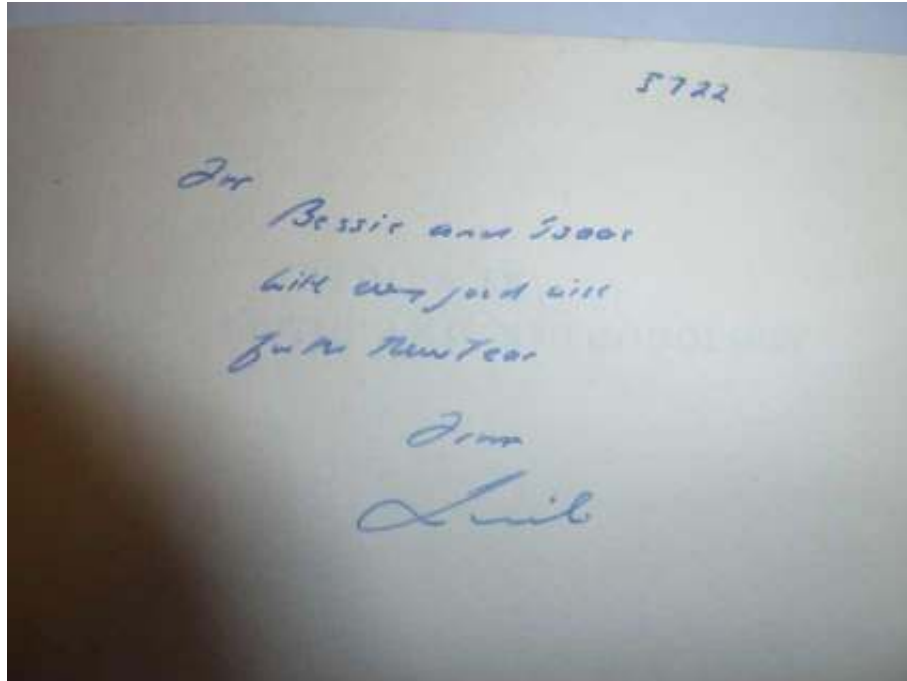 5722
For
Bessie and Isaac
with every good wish
for the New Year
From